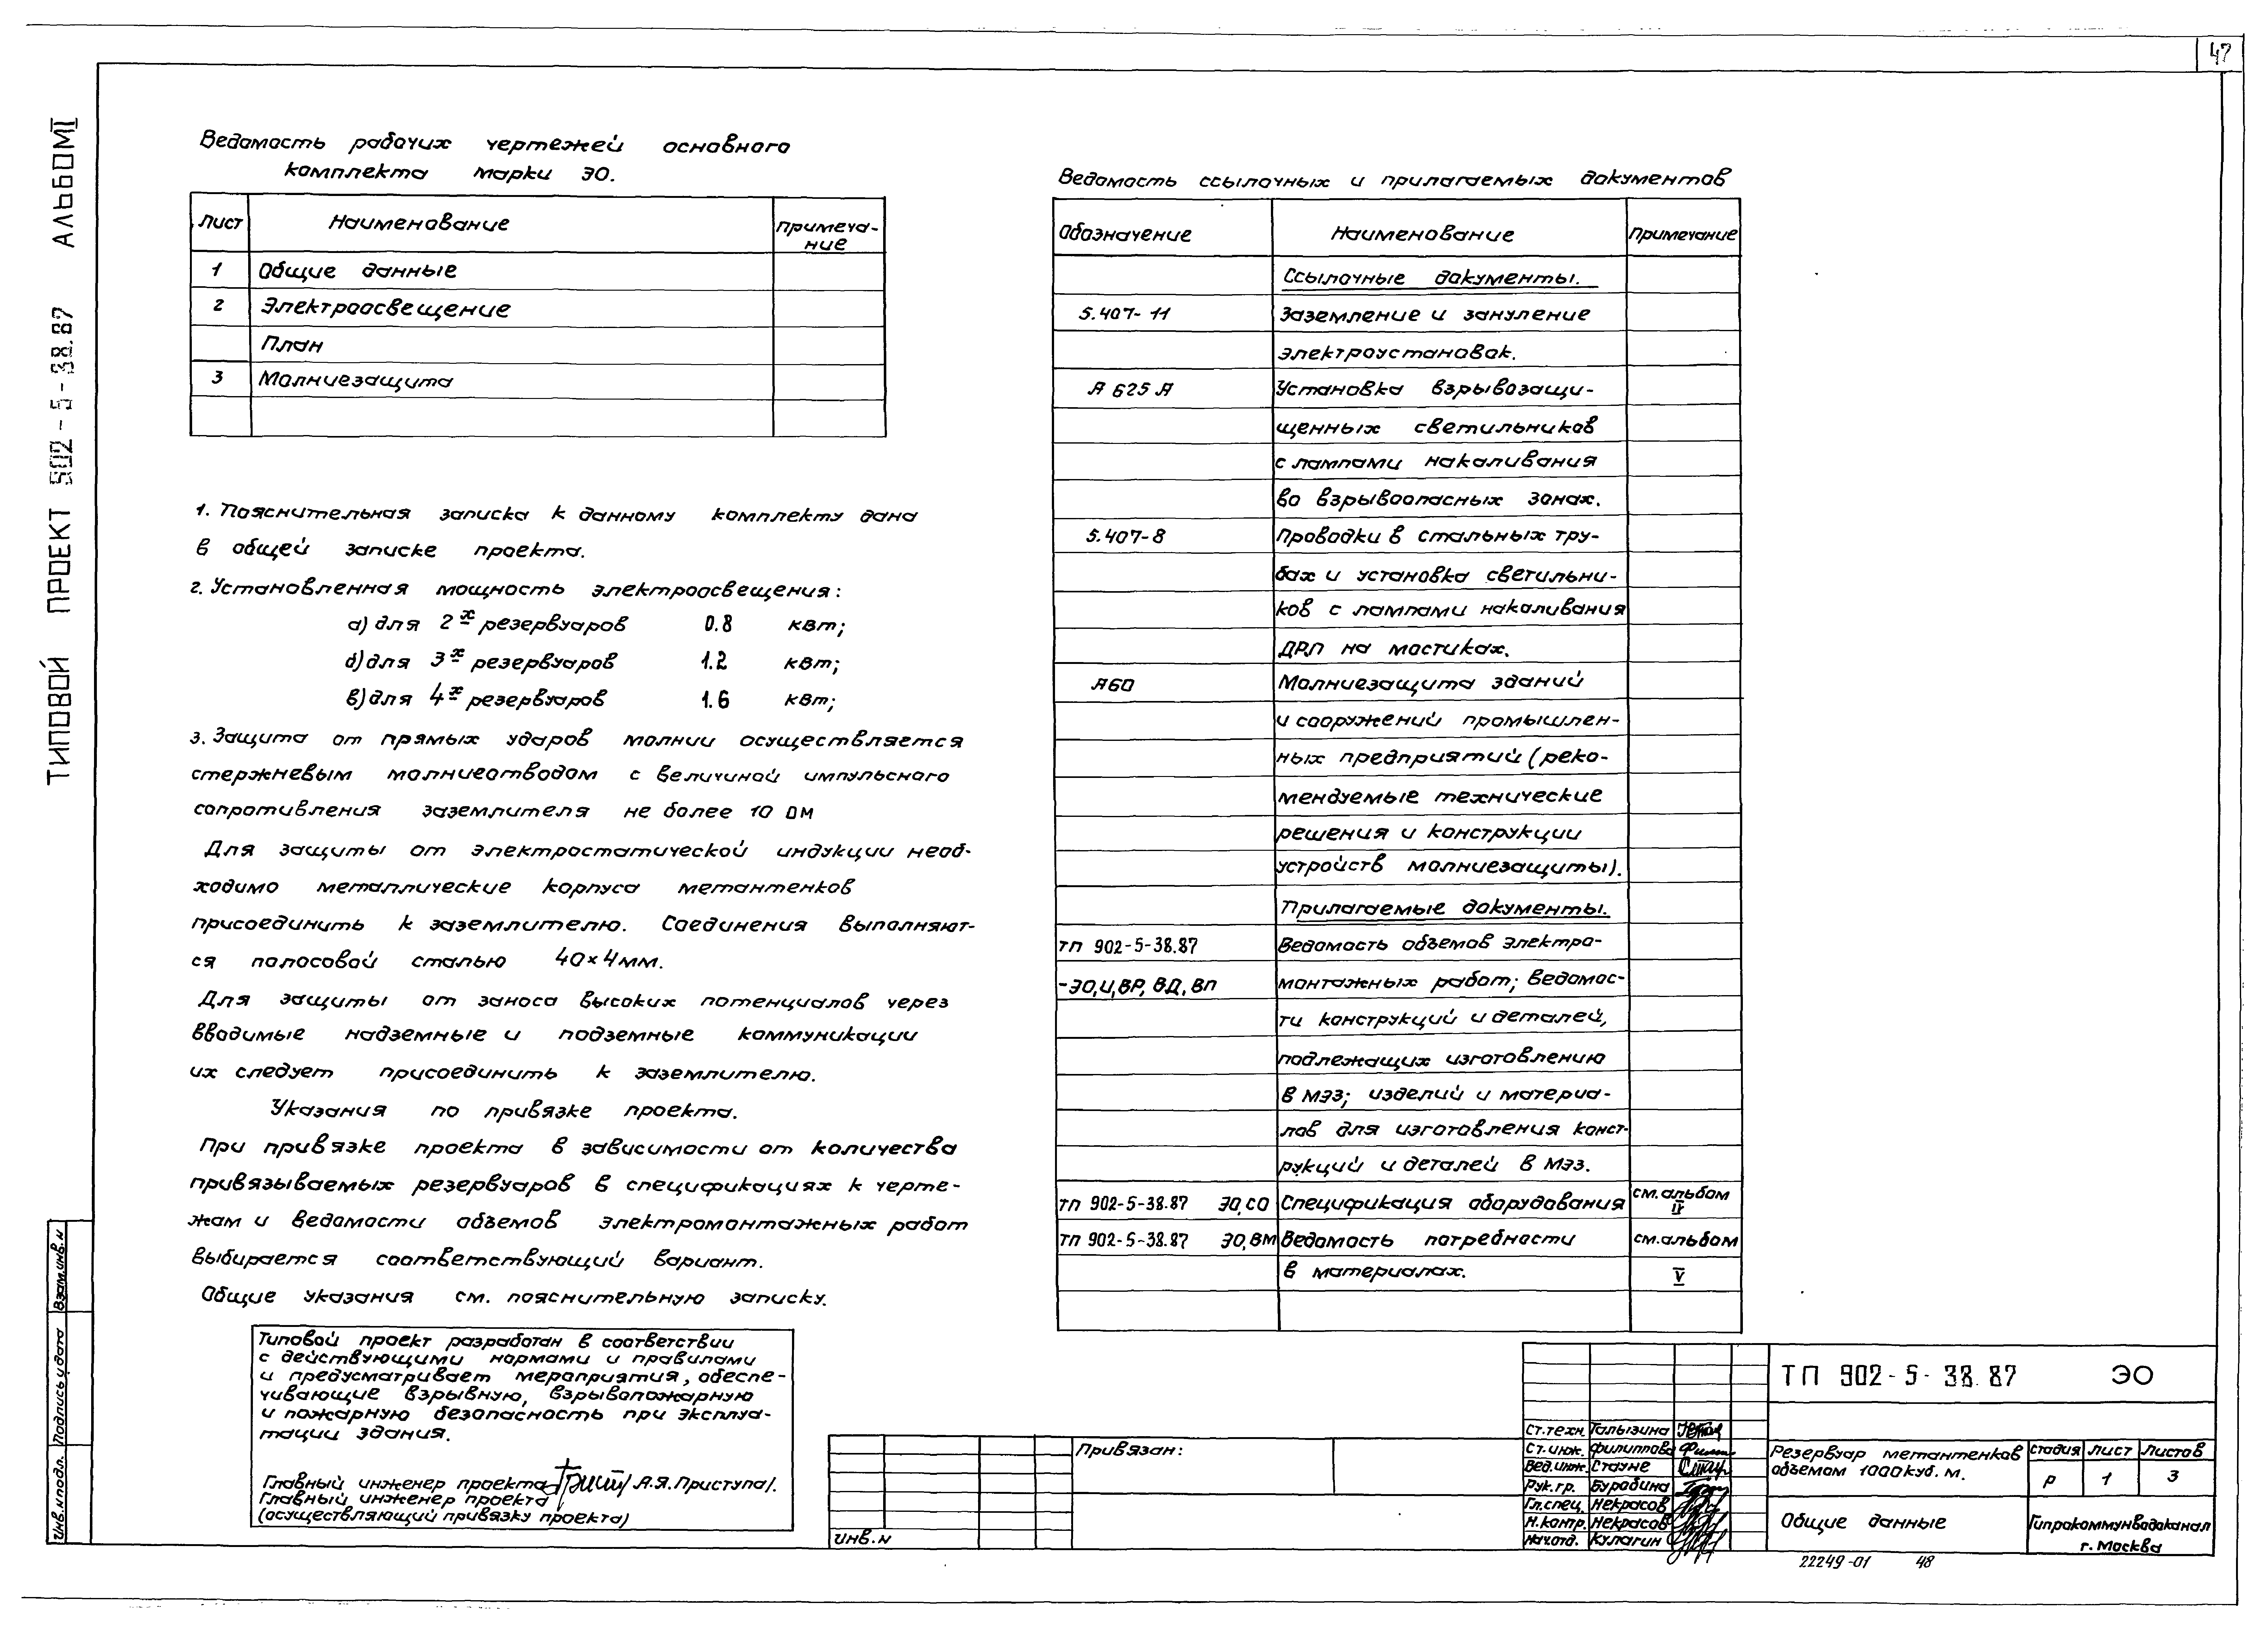 47
ТИПОВОЙ ПРОЕКТ 902-5-38.87 АЛЬБОМ I
Ведомость рабочих чертежей основного
комплекта марки ЭО.
Лист Наименование Примеча-
ние
1 Общие данные
2 Электроосвещение
План
3 Молниезащита
1. Пояснительная записка к данному комплекту дана
в общей записке проекта.
2. Установленная мощность электроосвещения:
а) для 2х резервуаров 0.8 квт;
б) для 3х резервуаров 1.2 квт;
в) для 4х резервуаров 1.6 квт;
3. Защита от прямых ударов молнии осуществляется
стержневым молниеотводом с величиной импульсного
сопротивления заземлителя не более 10 Ом
Для защиты от электростатической индукции необ-
ходимо металлические корпуса метантенков
присоединить к заземлителю. Соединения выполняют-
ся полосовой сталью 40×4мм.
Для защиты от заноса высоких потенциалов через
вводимые надземные и подземные коммуникации
их следует присоединить к заземлителю.
Указания по привязке проекта.
При привязке проекта в зависимости от количества
привязываемых резервуаров в спецификациях к черте-
жам и ведомости объемов электромонтажных работ
выбирается соответствующий вариант.
Общие указания см. пояснительную записку.
Типовой проект разработан в соответствии
с действующими нормами и правилами
и предусматривает мероприятия, обеспе-
чивающие взрывную, взрывопожарную
и пожарную безопасность при эксплуа-
тации здания.
Главный инженер проекта /А.Я.Приступа/.
Главный инженер проекта
(осуществляющий привязку проекта)
Ведомость ссылочных и прилагаемых документов
Обозначение Наименование Примечание
Ссылочные документы.
5.407-11 Заземление и зануление
электроустановок.
А 625 А Установка взрывозащи-
щенных светильников
с лампами накаливания
во взрывоопасных зонах.
5.407-8 Проводки в стальных тру-
бах и установка светильни-
ков с лампами накаливания
ДРЛ на мостиках.
А60 Молниезащита зданий
и сооружений промышлен-
ных предприятий (реко-
мендуемые технические
решения и конструкции
устройств молниезащиты).
Прилагаемые документы.
ТП 902-5-38.87 Ведомость объемов электро-
-ЭО,И,ВР, ВД, ВП монтажных работ; ведомос-
ти конструкций и деталей,
подлежащих изготовлению
в МЭЗ; изделий и материа-
лов для изготовления конст-
рукций и деталей в МЭЗ.
ТП 902-5-38.87 ЭО,СО Спецификация оборудования см.альбом
IV
ТП 902-5-38.87 ЭО,ВМ Ведомость потребности см.альбом
в материалах. V
Привязан:
Инв.н
Ст.техн. Талызина
Ст.инж. Филиппова
Вед.инж. Стауне
Рук.гр. Бурабина
Гл.спец. Некрасов
Н.контр. Некрасов
Нач.отд. Кулагин
ТП 902-5-38.87 ЭО
Резервуар метантенков
объемом 1000куб.м.
стадия лист листов
Р 1 3
Общие данные
Гипрокоммунводоканал
г. Москва
22249-01 48
Инв.н подл. Подпись и дата Взам.инв.н